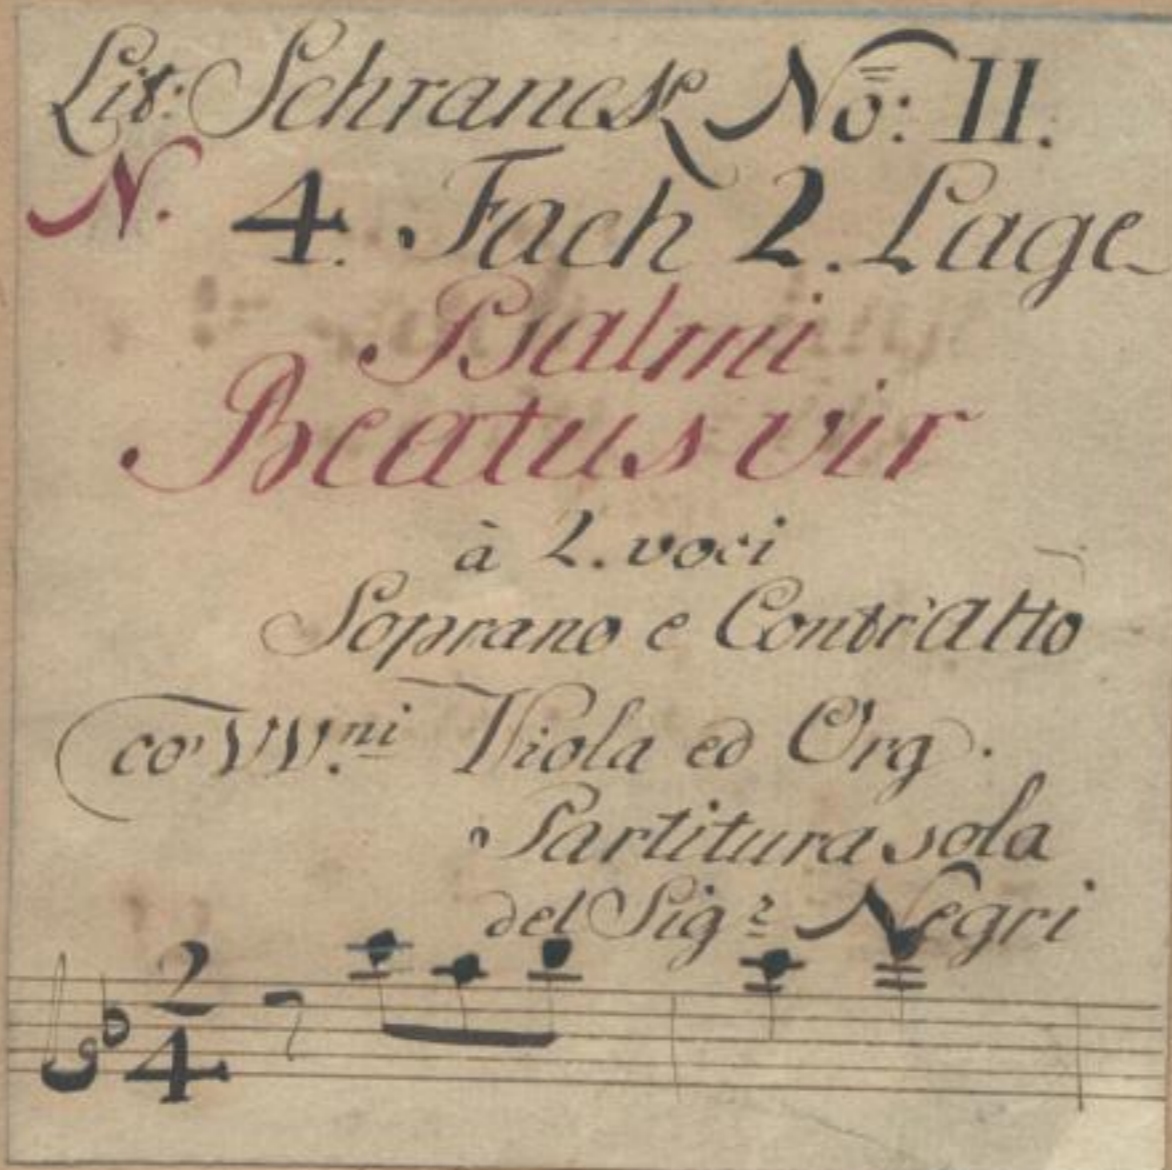 Lit: Schranck No: II.
N. 4. Fach 2. Lage
Psalmi
Beatus vir
à 2. voci
Soprano e Contr'Alto
co' VV.ni Viola ed Org.
Partitura sola
del Sigr Negri
2
4